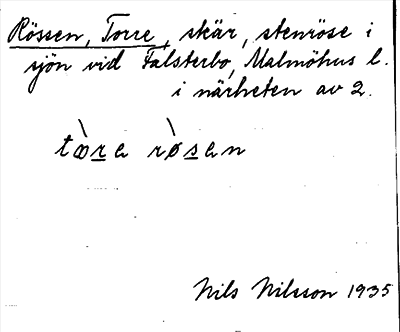 Rössen, Torre, skär, stenröse i
sjön vid Falsterbo, Malmöhus l.
i närheten av 2.
tòre ròsen
Nils Nilsson 1935